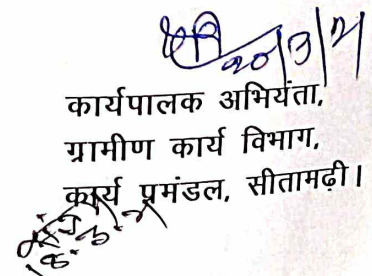 20/3/21
कार्यपालक अभियंता,
ग्रामीण कार्य विभाग,
कार्य प्रमंडल, सीतामढ़ी।